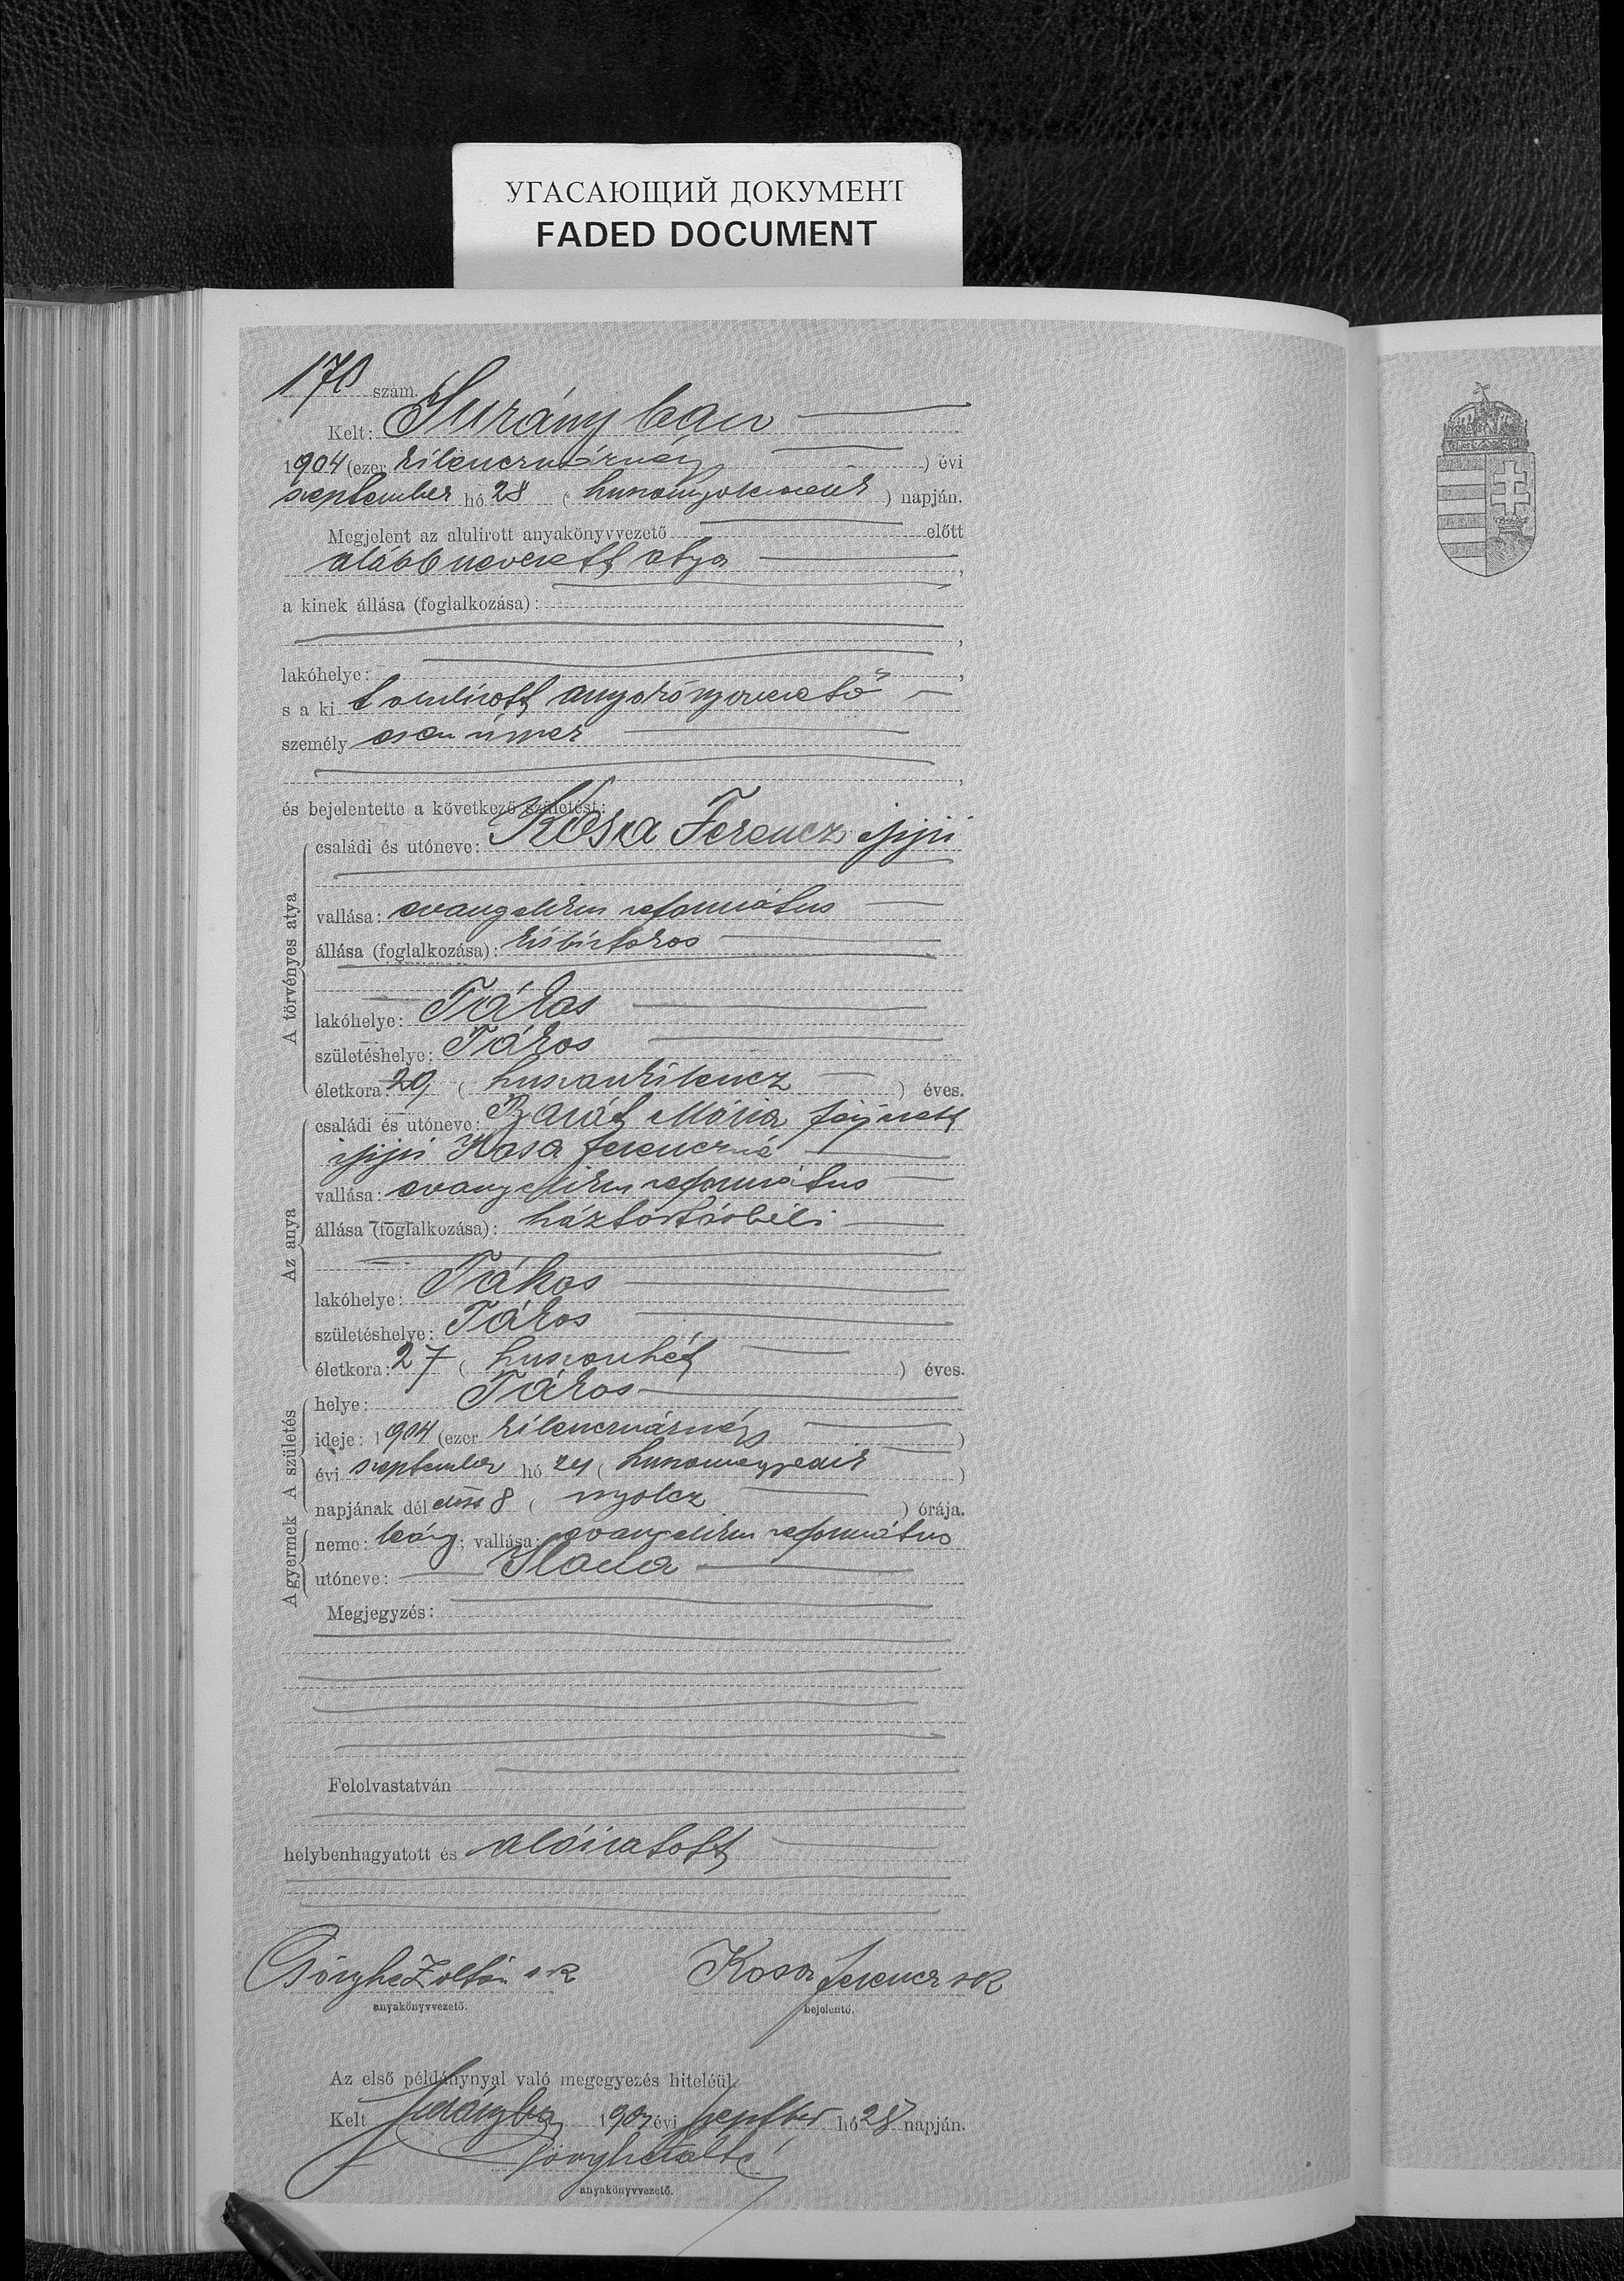 УГАСАЮЩИЙ ДОКУМЕНТ
FADED DOCUMENT
178 szám.
Kelt: Surányban
1904 (ezer kilenczszáznégy ) évi
szeptember hó 28 ( huszonnyolczadik ) napján.
Megjelent az alulirott anyakönyvvezető előtt
alább nevezett atya ,
a kinek állása (foglalkozása):
,
lakóhelye: ,
s a ki alulirott anyakönyvvezető
személyesen ismer
,
és bejelentette a következő születést:
A törvényes atya
családi és utóneve: Kósa Ferencz ifjú
vallása: evangelikus református
állása (foglalkozása): kisbirtokos
lakóhelye: Tákos
születéshelye: Tákos
életkora: 29 ( huszonkilencz ) éves.
Az anya
családi és utóneve: Barát Mária férjezett
ifjú Kósa Ferenczné
vallása: evangelikus református
állása (foglalkozása): háztartásbeli
lakóhelye: Tákos
születéshelye: Tákos
életkora: 27 ( huszonhét ) éves.
A születés
helye: Tákos
ideje: 1904 (ezer kilenczszáznégy )
évi szeptember hó 24 ( huszonnegyedik )
napjának délelőtt 8 ( nyolcz ) órája.
A gyermek
neme: leány; vallása: evangelikus református
utóneve: Ilona
Megjegyzés:
Felolvastatván
helybenhagyatott és aláiratott
Zoltán s k
anyakönyvvezető.
Kosa Ferencz sk
bejelentő.
Az első példánynyal való megegyezés hiteléül.
Kelt Surányban 1904 évi szeptber hó 28 napján.
anyakönyvvezető.